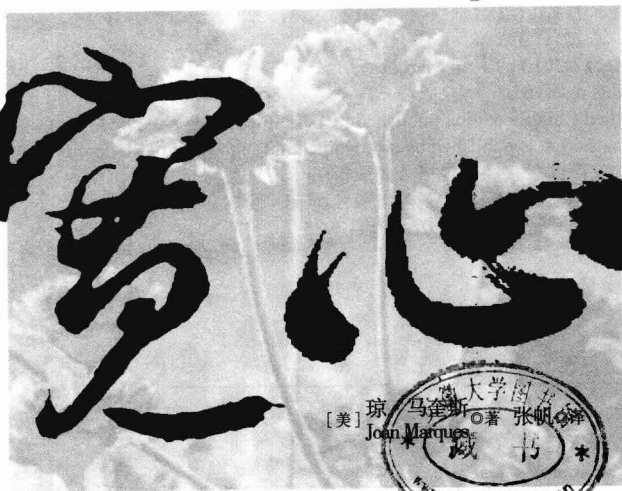 宽心
[美] 琼 马奎斯 ◎著 张帆 ◎译
Joan Marques
大学图书
藏书